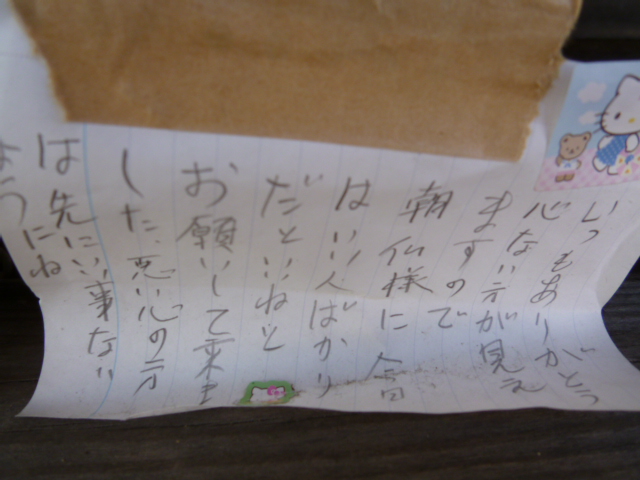 いつもありがとう
心ない方が見え
ますので
朝仏様に今日
はいい人ばかり
だといいねと
お願いして来ま
した、悪い心の方
は先にいい事ない
ようにね